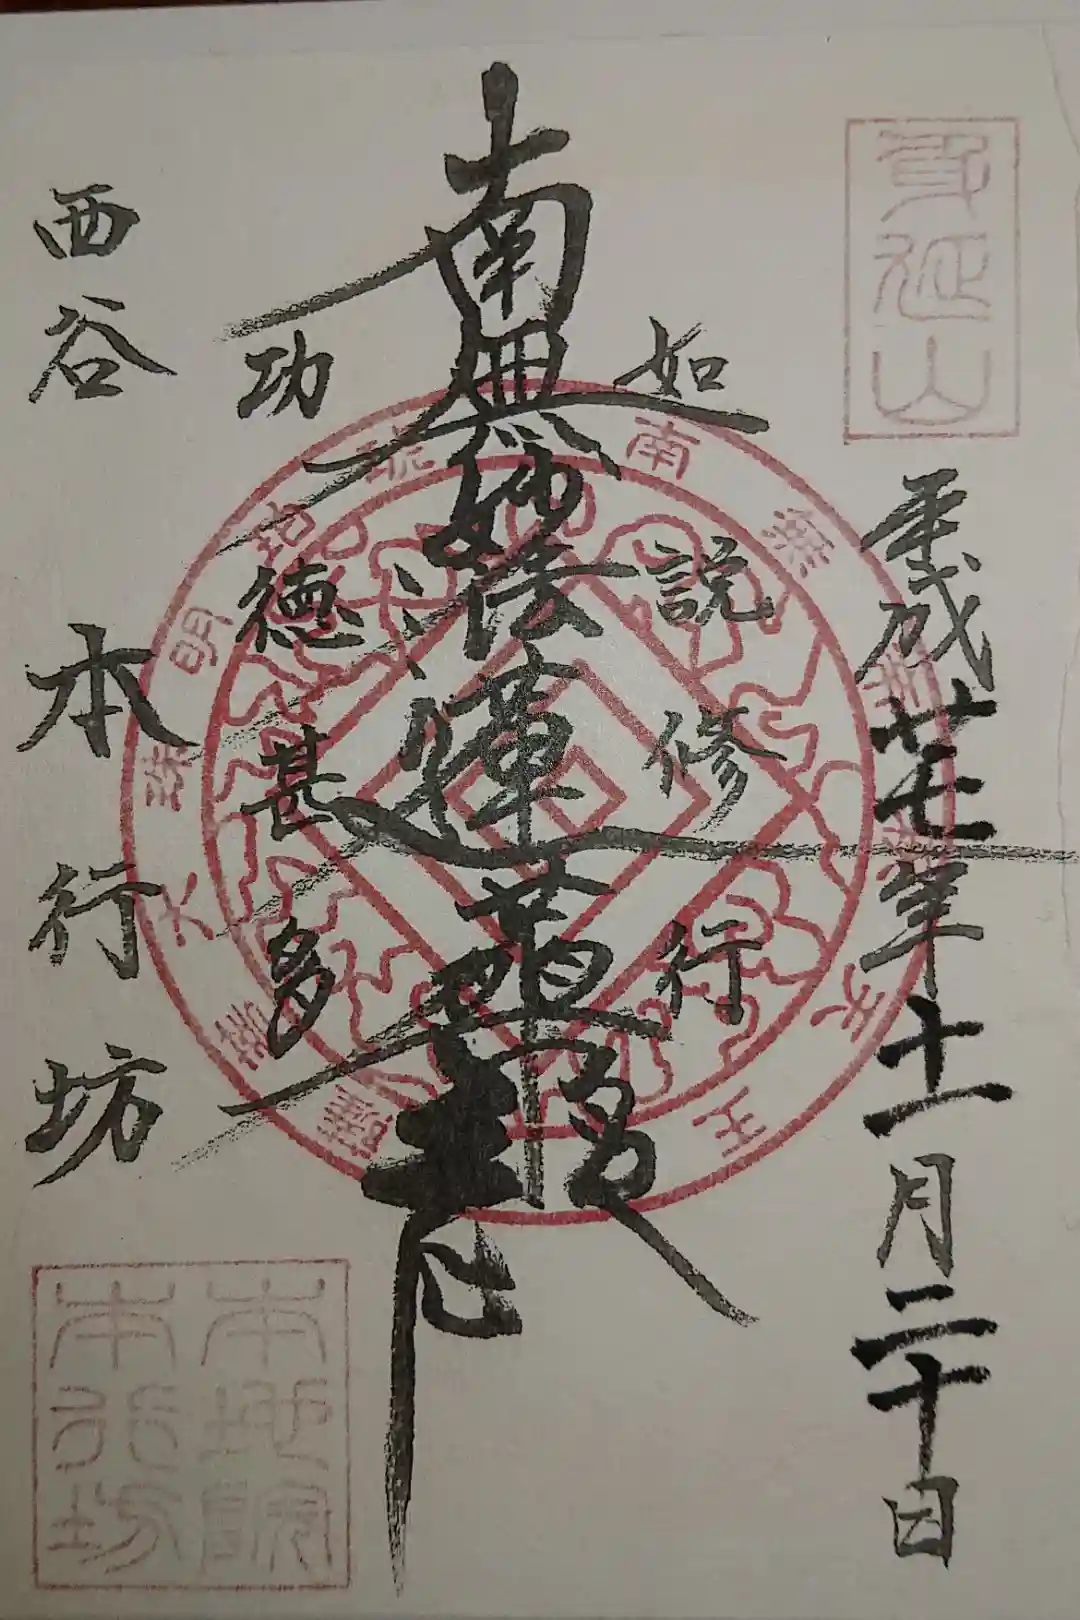 身延山
平成廿七年十一月二十日
如説修行
南無妙法蓮華経
功徳甚多
西谷
本行坊
本地院
本行坊